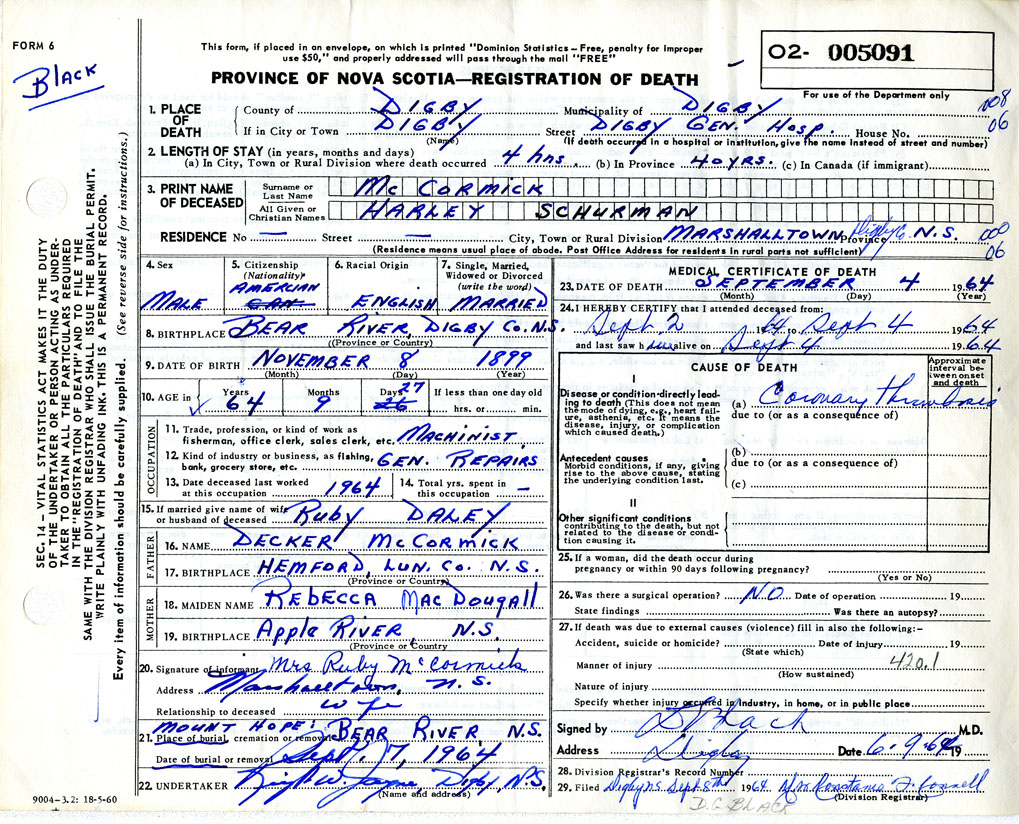 FORM 6
Black
This form, if placed in an envelope, on which is printed "Dominion Statistics – Free, penalty for improper
use $50," and properly addressed will pass through the mail "FREE"
PROVINCE OF NOVA SCOTIA—REGISTRATION OF DEATH
O2- 005091
For use of the Department only
008
06
SEC. 14 – VITAL STATISTICS ACT MAKES IT THE DUTY
OF THE UNDERTAKER OR PERSON ACTING AS UNDER-
TAKER TO OBTAIN ALL THE PARTICULARS REQUIRED
IN THE "REGISTRATION OF DEATH" AND TO FILE THE
SAME WITH THE DIVISION REGISTRAR WHO SHALL ISSUE THE BURIAL PERMIT.
WRITE PLAINLY WITH UNFADING INK. THIS IS A PERMANENT RECORD.
Every item of information should be carefully supplied. (See reverse side for instructions.)
1. PLACE OF DEATH County of DIGBY Municipality of DIGBY
If in City or Town DIGBY (Name) Street DIGBY GEN. HOSP. House No.
(If death occurred in a hospital or institution, give the name instead of street and number)
2. LENGTH OF STAY (in years, months and days)
(a) In City, Town or Rural Division where death occurred 4 hrs. (b) In Province 40 yrs. (c) In Canada (if immigrant)
3. PRINT NAME OF DECEASED Surname or Last Name McCORMICK
All Given or Christian Names HARLEY SCHURMAN
RESIDENCE No — Street — City, Town or Rural Division MARSHALLTOWN, Digby Co. Province N.S. 000
06
(Residence means usual place of abode. Post Office Address for residents in rural parts not sufficient)
4. Sex MALE
5. Citizenship (Nationality) AMERCIAN CAN.
6. Racial Origin ENGLISH
7. Single, Married, Widowed or Divorced (write the word) MARRIED
8. BIRTHPLACE BEAR RIVER, DIGBY CO. N.S.
(Province or Country)
9. DATE OF BIRTH NOVEMBER 8 1899
(Month) (Day) (Year)
10. AGE in Years 64 Months 9 Days 27 26 If less than one day old hrs. or min.
OCCUPATION
11. Trade, profession, or kind of work as
fisherman, office clerk, sales clerk, etc. MACHINIST
12. Kind of industry or business, as fishing,
bank, grocery store, etc. GEN. REPAIRS
13. Date deceased last worked at this occupation 1964 14. Total yrs. spent in this occupation —
15. If married give name of wife
or husband of deceased Ruby DALEY
FATHER
16. NAME DECKER McCORMICK
17. BIRTHPLACE HEMFORD, LUN. CO. N.S.
(Province or Country)
MOTHER
18. MAIDEN NAME REBECCA MacDougall
19. BIRTHPLACE Apple RIVER, N.S.
(Province or Country
20. Signature of informant Mrs Ruby McCormick
Address Marshalltown, N.S.
Relationship to deceased wife
MOUNT HOPE:
21. Place of burial, cremation or removal BEAR RIVER N.S.
Date of burial or removal Sept. 7, 1964
22. UNDERTAKER Digby, N.S.
(Name and address)
9004–3.2: 18-5-60
MEDICAL CERTIFICATE OF DEATH
23. DATE OF DEATH SEPTEMBER 4 1964
(Month) (Day) (Year)
24. I HEREBY CERTIFY that I attended deceased from:
Sept 2 1964 to Sept 4 1964
and last saw him alive on Sept 4 1964
CAUSE OF DEATH
Approximate interval between onset and death
I
Disease or condition directly lead-
ing to death (This does not mean
the mode of dying, e.g., heart fail-
ure, asthenia, etc. It means the
disease, injury, or complication
which caused death.)
(a) Coronary thrombosis
due to (or as a consequence of)
Antecedent causes
Morbid conditions, if any, giving
rise to the above cause, stating
the underlying condition last.
(b)
due to (or as a consequence of)
(c)
II
Other significant conditions
contributing to the death, but not
related to the disease or condi-
tion causing it.
25. If a woman, did the death occur during
pregnancy or within 90 days following pregnancy?
(Yes or No)
26. Was there a surgical operation? NO Date of operation 19
State findings Was there an autopsy?
27. If death was due to external causes (violence) fill in also the following:–
Accident, suicide or homicide? Date of injury 19
(State which)
Manner of injury 420.1
(How sustained)
Nature of injury
Specify whether injury occurred in industry, in home, or in public place
Signed by D Black M.D.
Address Digby Date 6.9.64 19
28. Division Registrar's Record Number
29. Filed Digby NS Sept 8th 1964 Mrs Constance F.
(Division Registrar)
D.G BLACK